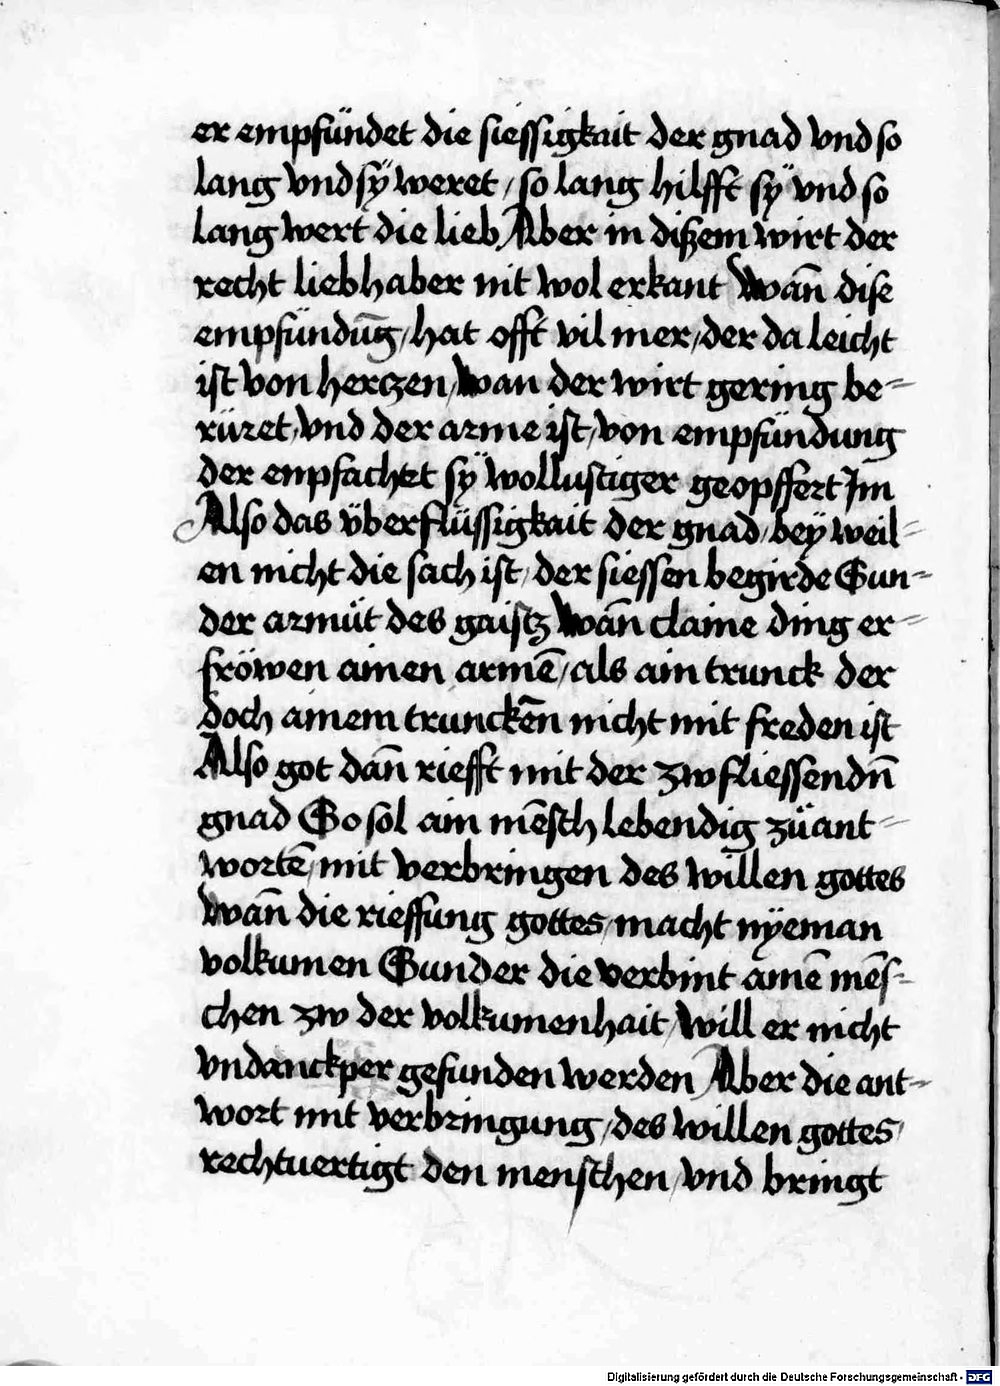 er empfündet die siessigkait der gnad vnd so
lang vnd sÿ weret / so lang hilfft sÿ vnd so
lang wert die lieb / Aber in dißem wirt der
recht liebhaber nit wol erkant Wān dise
empfündūg / hat offt vil mer / der da leicht
ist von herczen / Wan der wirt gering be=
rüret / vnd der arme ist / von empfündung
der enpfachet sÿ wollustiger geopffert Im
Also das überflüssigkait der gnad / beÿ weil=
en nicht die sach ist / der siessen begirde Sun=
der armüt des gaistz Wān claine ding er=
fröwen ainen armē / als ain trunck der
doch ainem trunckēn nicht mit freden ist
Also got dān riefft mit der zwfliessendn̄
gnad So sol ain mēsch lebendig zü ant=
wortē / mit verbringen des willen gottes
Wān die rieffung gottes / macht nÿeman
volkumen Sunder die verbint ainē mēs=
chen zw der volkumenhait / Will er nicht
vndanckper gefunden werden Aber die ant=
wort mit verbringung / des willen gottes /
rechtuertigt den menschen / vnd bringt
Digitalisierung gefördert durch die Deutsche Forschungsgemeinschaft - DFG